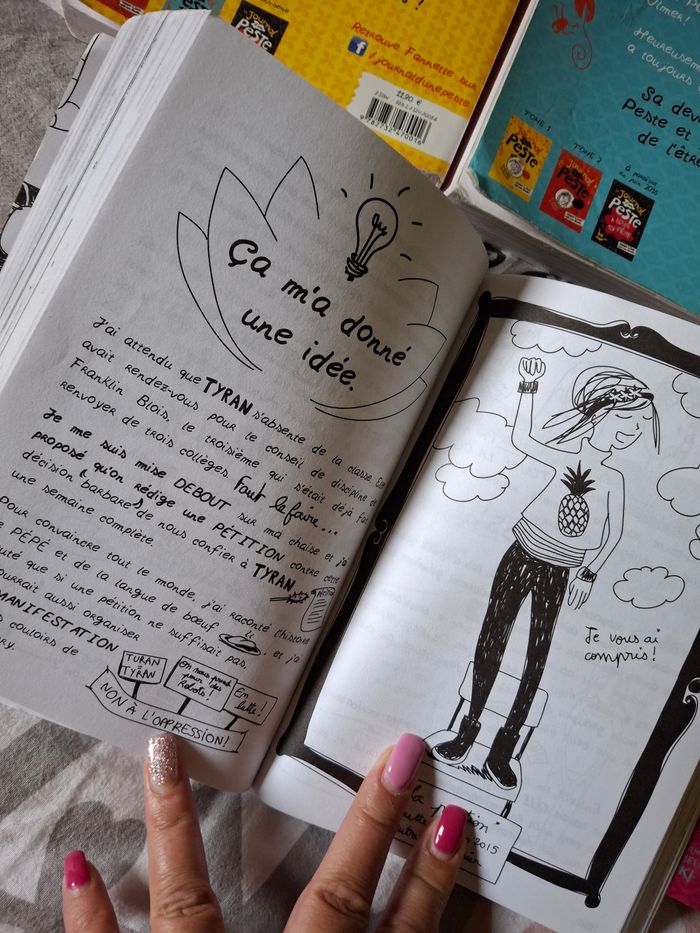 RETROUVE FANNETTE SUR
/journaldunepeste
11,90 €
9782732470016
Heureusement
a toujours
Sa
peste et
de l'être
TOME 1
TOME 2
Journal
PESTE
Journal
PESTE
Journal
PESTE
Ça m'a donné
une idée.
J'ai attendu que TYRAN s'absente de la classe. Elle
avait rendez-vous pour le conseil de discipline de
Franklin Blois, le troisième qui s'était déjà fait
renvoyer de trois collèges. Faut le faire...
Je me suis mise DEBOUT sur ma chaise et j'ai
proposé qu'on rédige une PÉTITION contre cette
décision (barbare) de nous confier à TYRAN
une semaine complète.
Pour convaincre tout le monde, j'ai raconté l'histoire
de PÉPÉ et de la langue de boeuf, et j'ai
que si une pétition ne suffisait pas,
pourrait aussi organiser
MANIFESTATION
couloirs de
TURAN
=
TYRAN
On nous prend
pour des
Robots!
En
lutte!
NON À L'OPPRESSION!
Je vous ai
compris!
2015